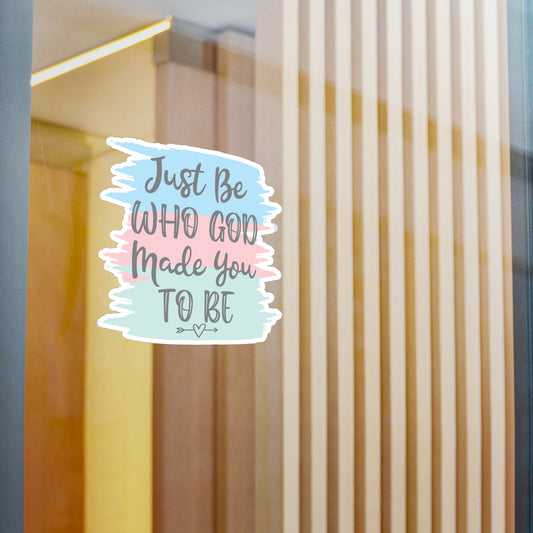 Just Be
WHO GOD
Made You
TO BE